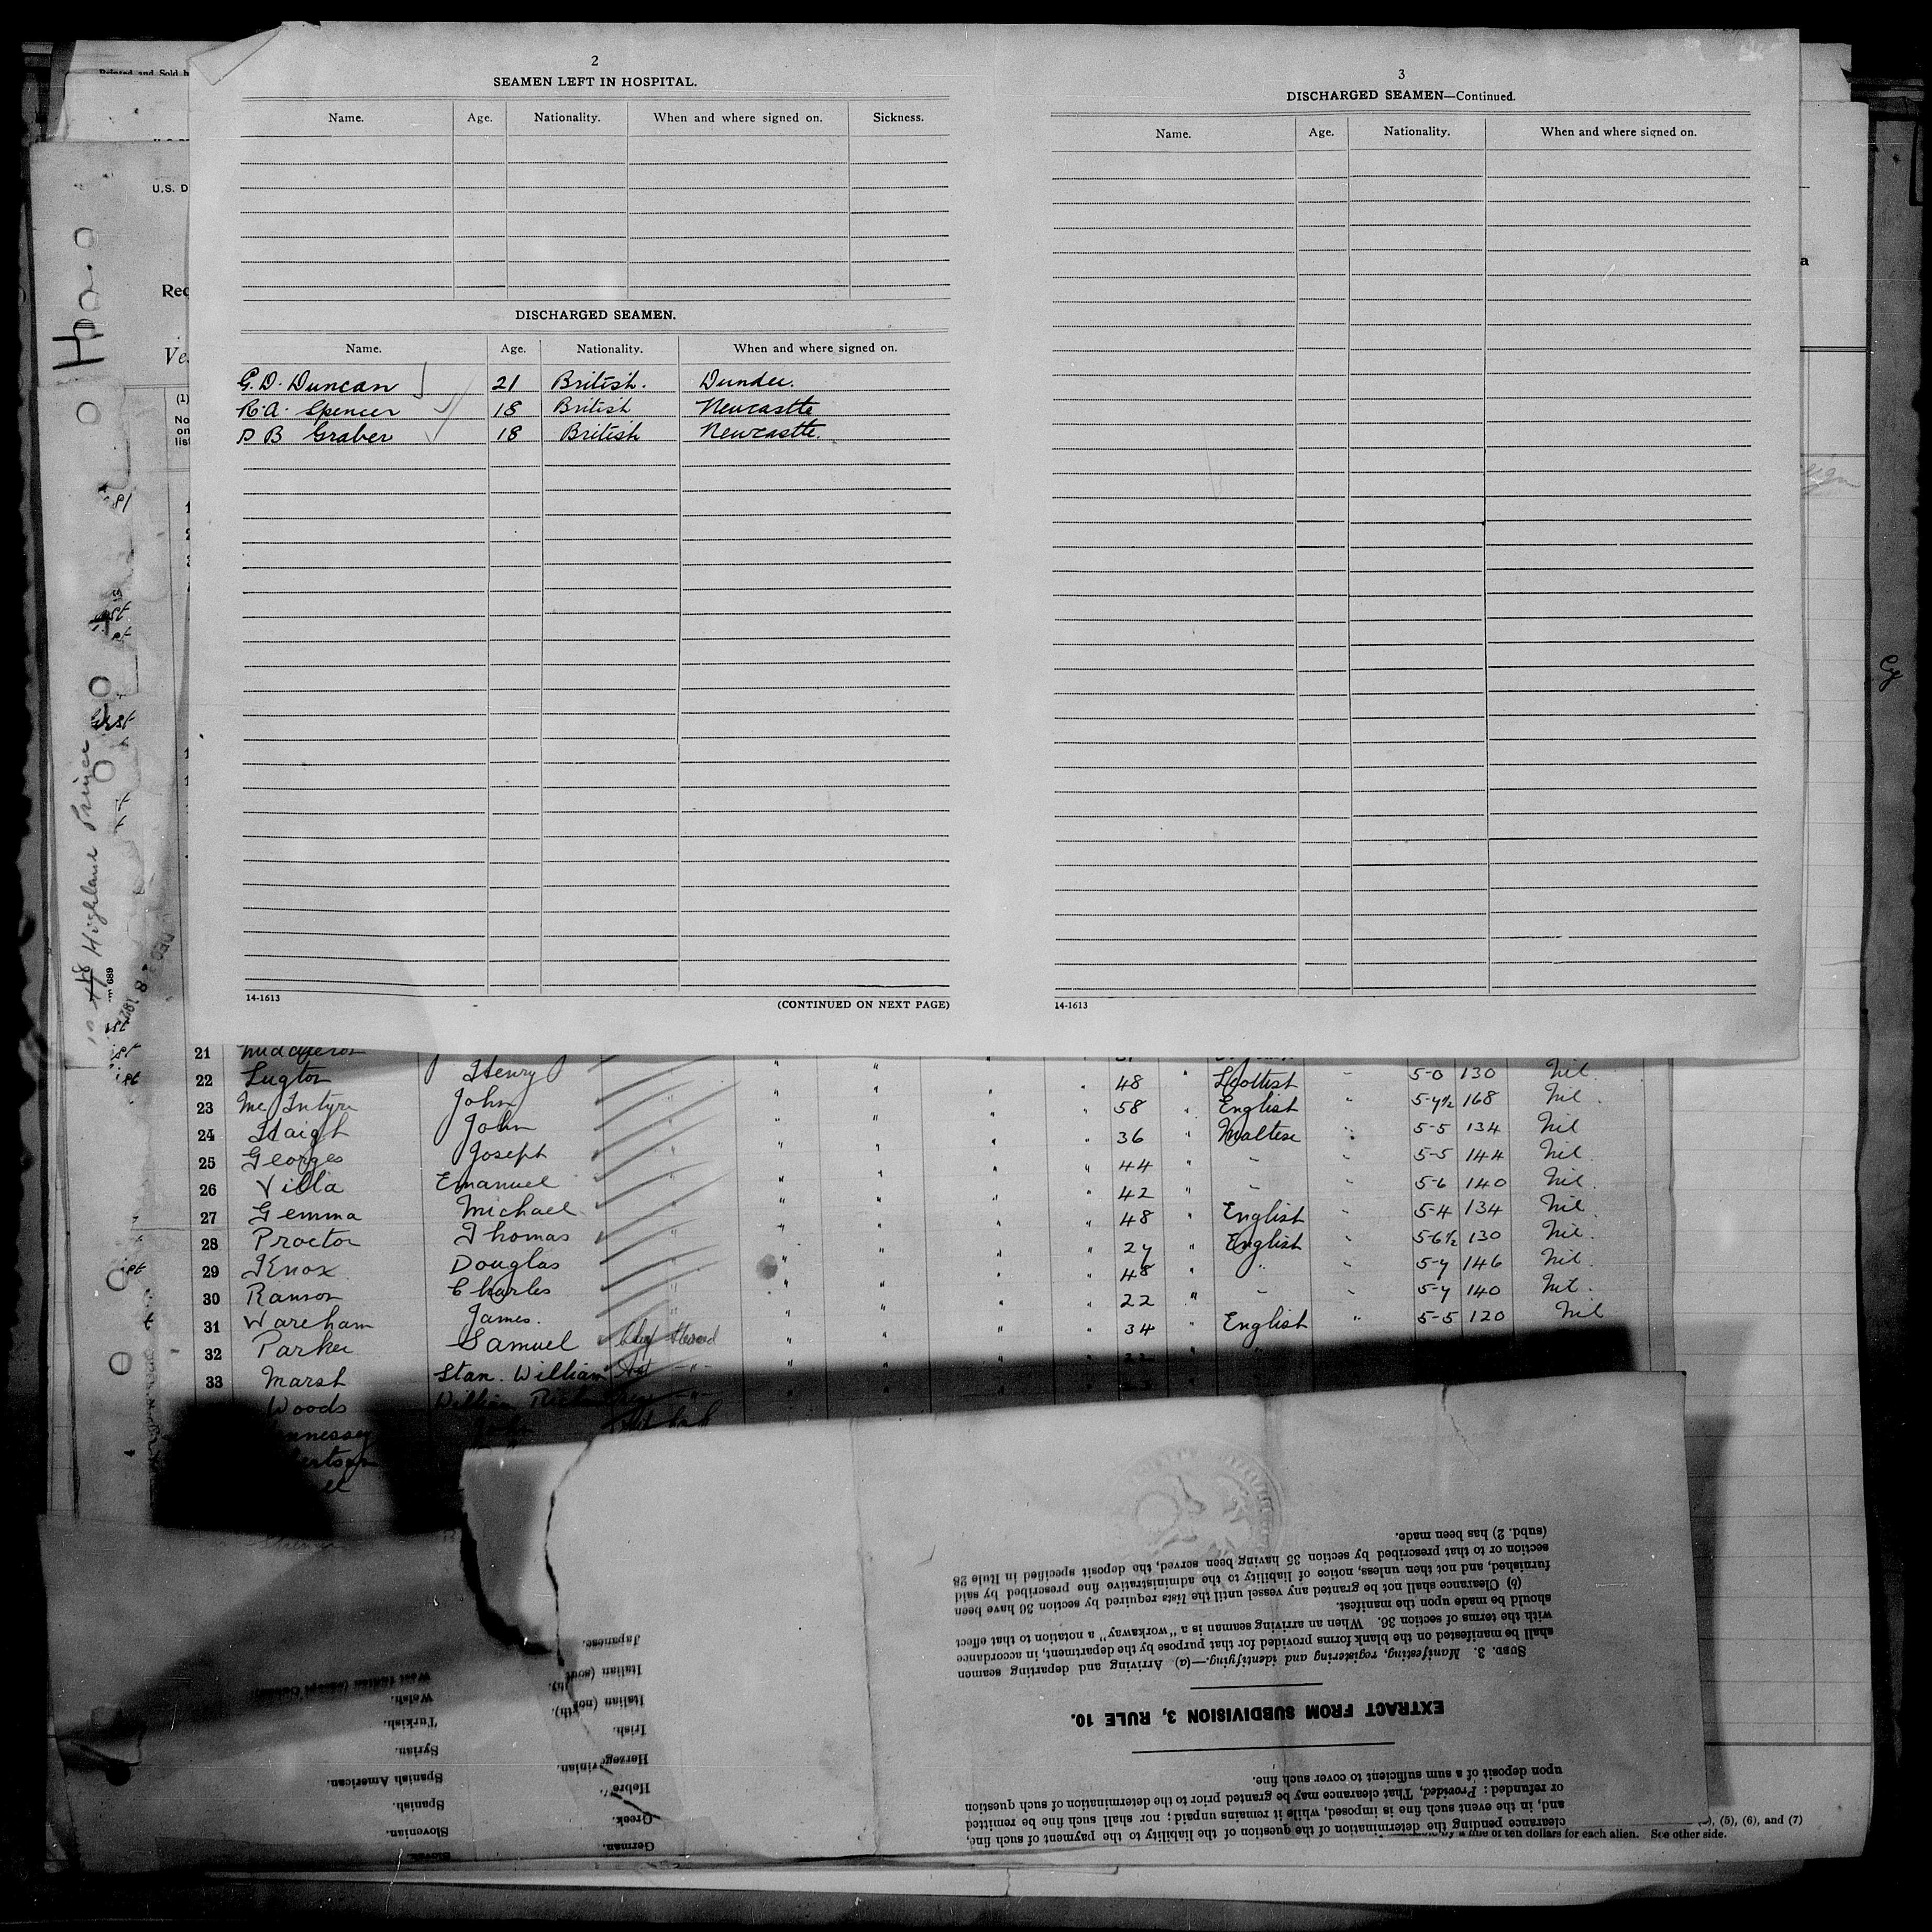 2
SEAMEN LEFT IN HOSPITAL.
Name. Age. Nationality. When and where signed on. Sickness.
DISCHARGED SEAMEN.
Name. Age. Nationality. When and where signed on.
G. D. Duncan 21 British. Dundee.
R. A. Spencer 18 British Newcastle
D B Graber 18 British Newcastle.
14-1613 (CONTINUED ON NEXT PAGE)
3
DISCHARGED SEAMEN—Continued.
Name. Age. Nationality. When and where signed on.
14-1613
Printed and Sold b
U.S. D
Rec
Ve
(1)
No
on
list
Highland Prince
21
22 Lugton Henry 48 Scottish 5-0 130 Nil
23 Mc Intyre John 58 English 5-4½ 168 Nil
24 Haigh John 36 Maltese 5-5 134 Nil
25 Georges Joseph 44 5-5 144 Nil
26 Villa Emanuel 42 5-6 140 Nil
27 Gemma Michael 48 English 5-4 134 Nil
28 Proctor Thomas 27 English 5-6½ 130 Nil
29 Knox Douglas 48 5-7 146 Nil
30 Ranson Charles 22 5-7 140 Nil
31 Wareham James. 34 English 5-5 120 Nil
32 Parker Samuel Chief Steward
33 Marsh Stan. William Ast
Woods William
nnessey John
ertson
(subd. 2) has been made.
section or to that prescribed by section 35 having been served, the deposit specified in Rule 28
furnished, and not then unless, notice of liability to the administrative fine prescribed by said
(b) Clearance shall not be granted any vessel until the lists required by section 36 have been
should be made upon the manifest.
with the terms of section 36. When an arriving seaman is a "workaway" a notation to that effect
shall be manifested on the blank forms provided for that purpose by the department, in accordance
SUBD. 3. Manifesting, registering and identifying.—(a) Arriving and departing seamen
EXTRACT FROM SUBDIVISION 3, RULE 10.
upon deposit of a sum sufficient to cover such fine.
or refunded: Provided, That clearance may be granted prior to the determination of such question
and, in the event such fine is imposed, while it remains unpaid; nor shall such fine be remitted
clearance pending the determination of the question of the liability to the payment of such fine,
Japanese.
Italian (south).
Italian (north).
Irish.
Herzegovinian.
Hebrew.
Greek.
German.
West Indian (except Cuban).
Welsh.
Turkish.
Syrian.
Spanish American.
Spanish.
Slovenian.
Slovak.
(5), (6), and (7)
of a fine of ten dollars for each alien. See other side.